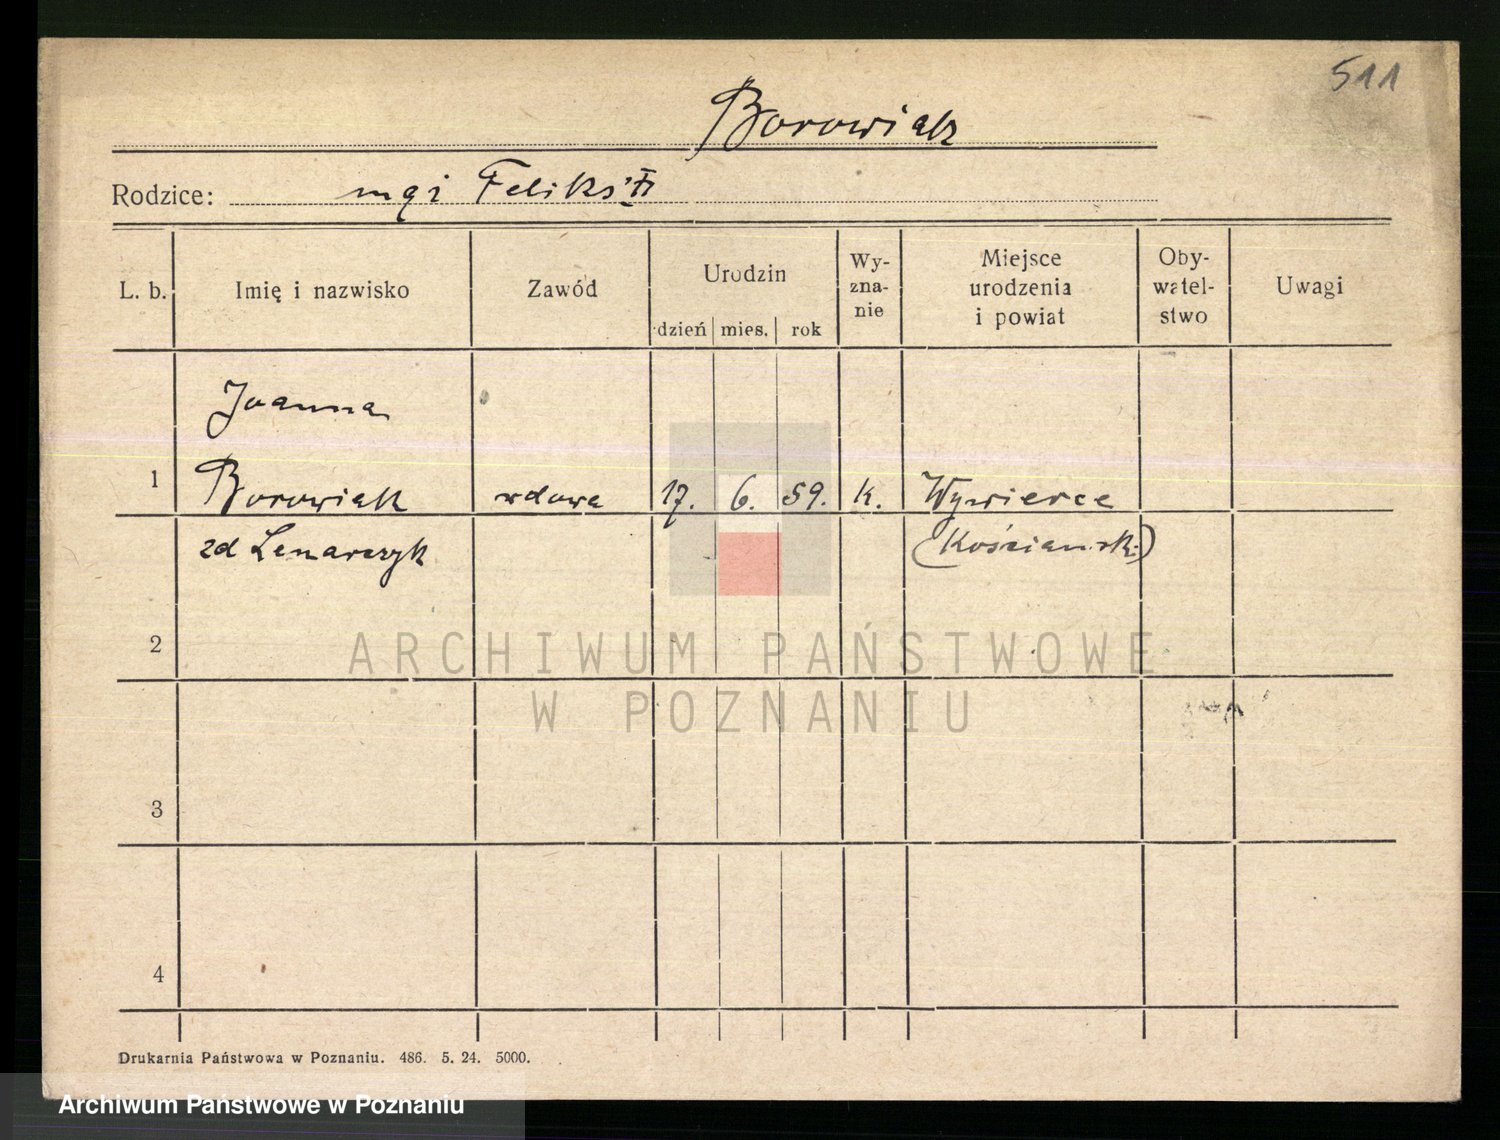 511
Borowiak
Rodzice: mąż Feliks
L. b. Imię i nazwisko Zawód Urodzin Wy- Miejsce Oby- Uwagi
zna- urodzenia watel-
nie i powiat stwo
dzień mies. rok
Joanna
1 Borowiak wdowa 17. 6. 59. k.
zd Lenarczyk (Kościański)
2
ARCHIWUM PAŃSTWOWE
W POZNANIU
3
4
Drukarnia Państwowa w Poznaniu. 486. 5. 24. 5000.
Archiwum Państwowe w Poznaniu